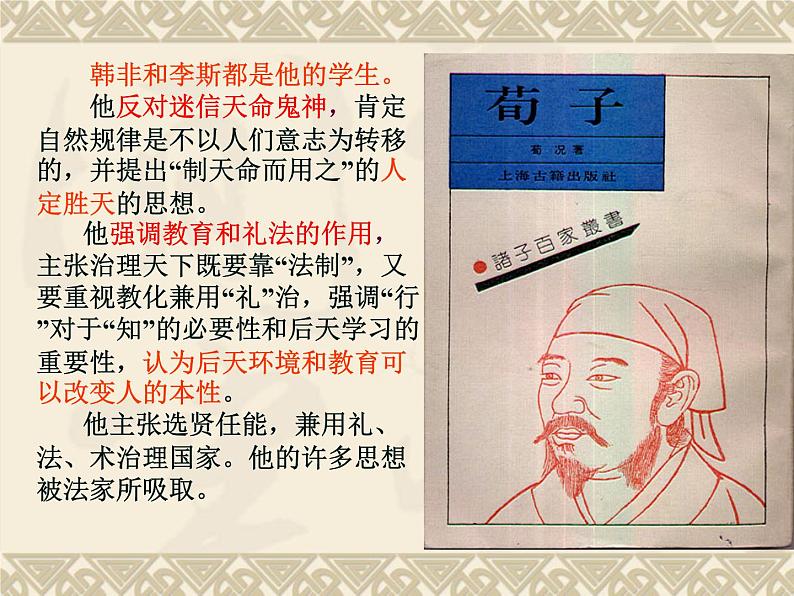 韩非和李斯都是他的学生。
他反对迷信天命鬼神，肯定
自然规律是不以人们意志为转移
的，并提出“制天命而用之”的人
定胜天的思想。
他强调教育和礼法的作用，
主张治理天下既要靠“法制”，又
要重视教化兼用“礼”治，强调“行
”对于“知”的必要性和后天学习的
重要性，认为后天环境和教育可
以改变人的本性。
他主张选贤任能，兼用礼、
法、术治理国家。他的许多思想
被法家所吸取。
荀子
荀况著
上海古籍出版社
諸子百家叢書